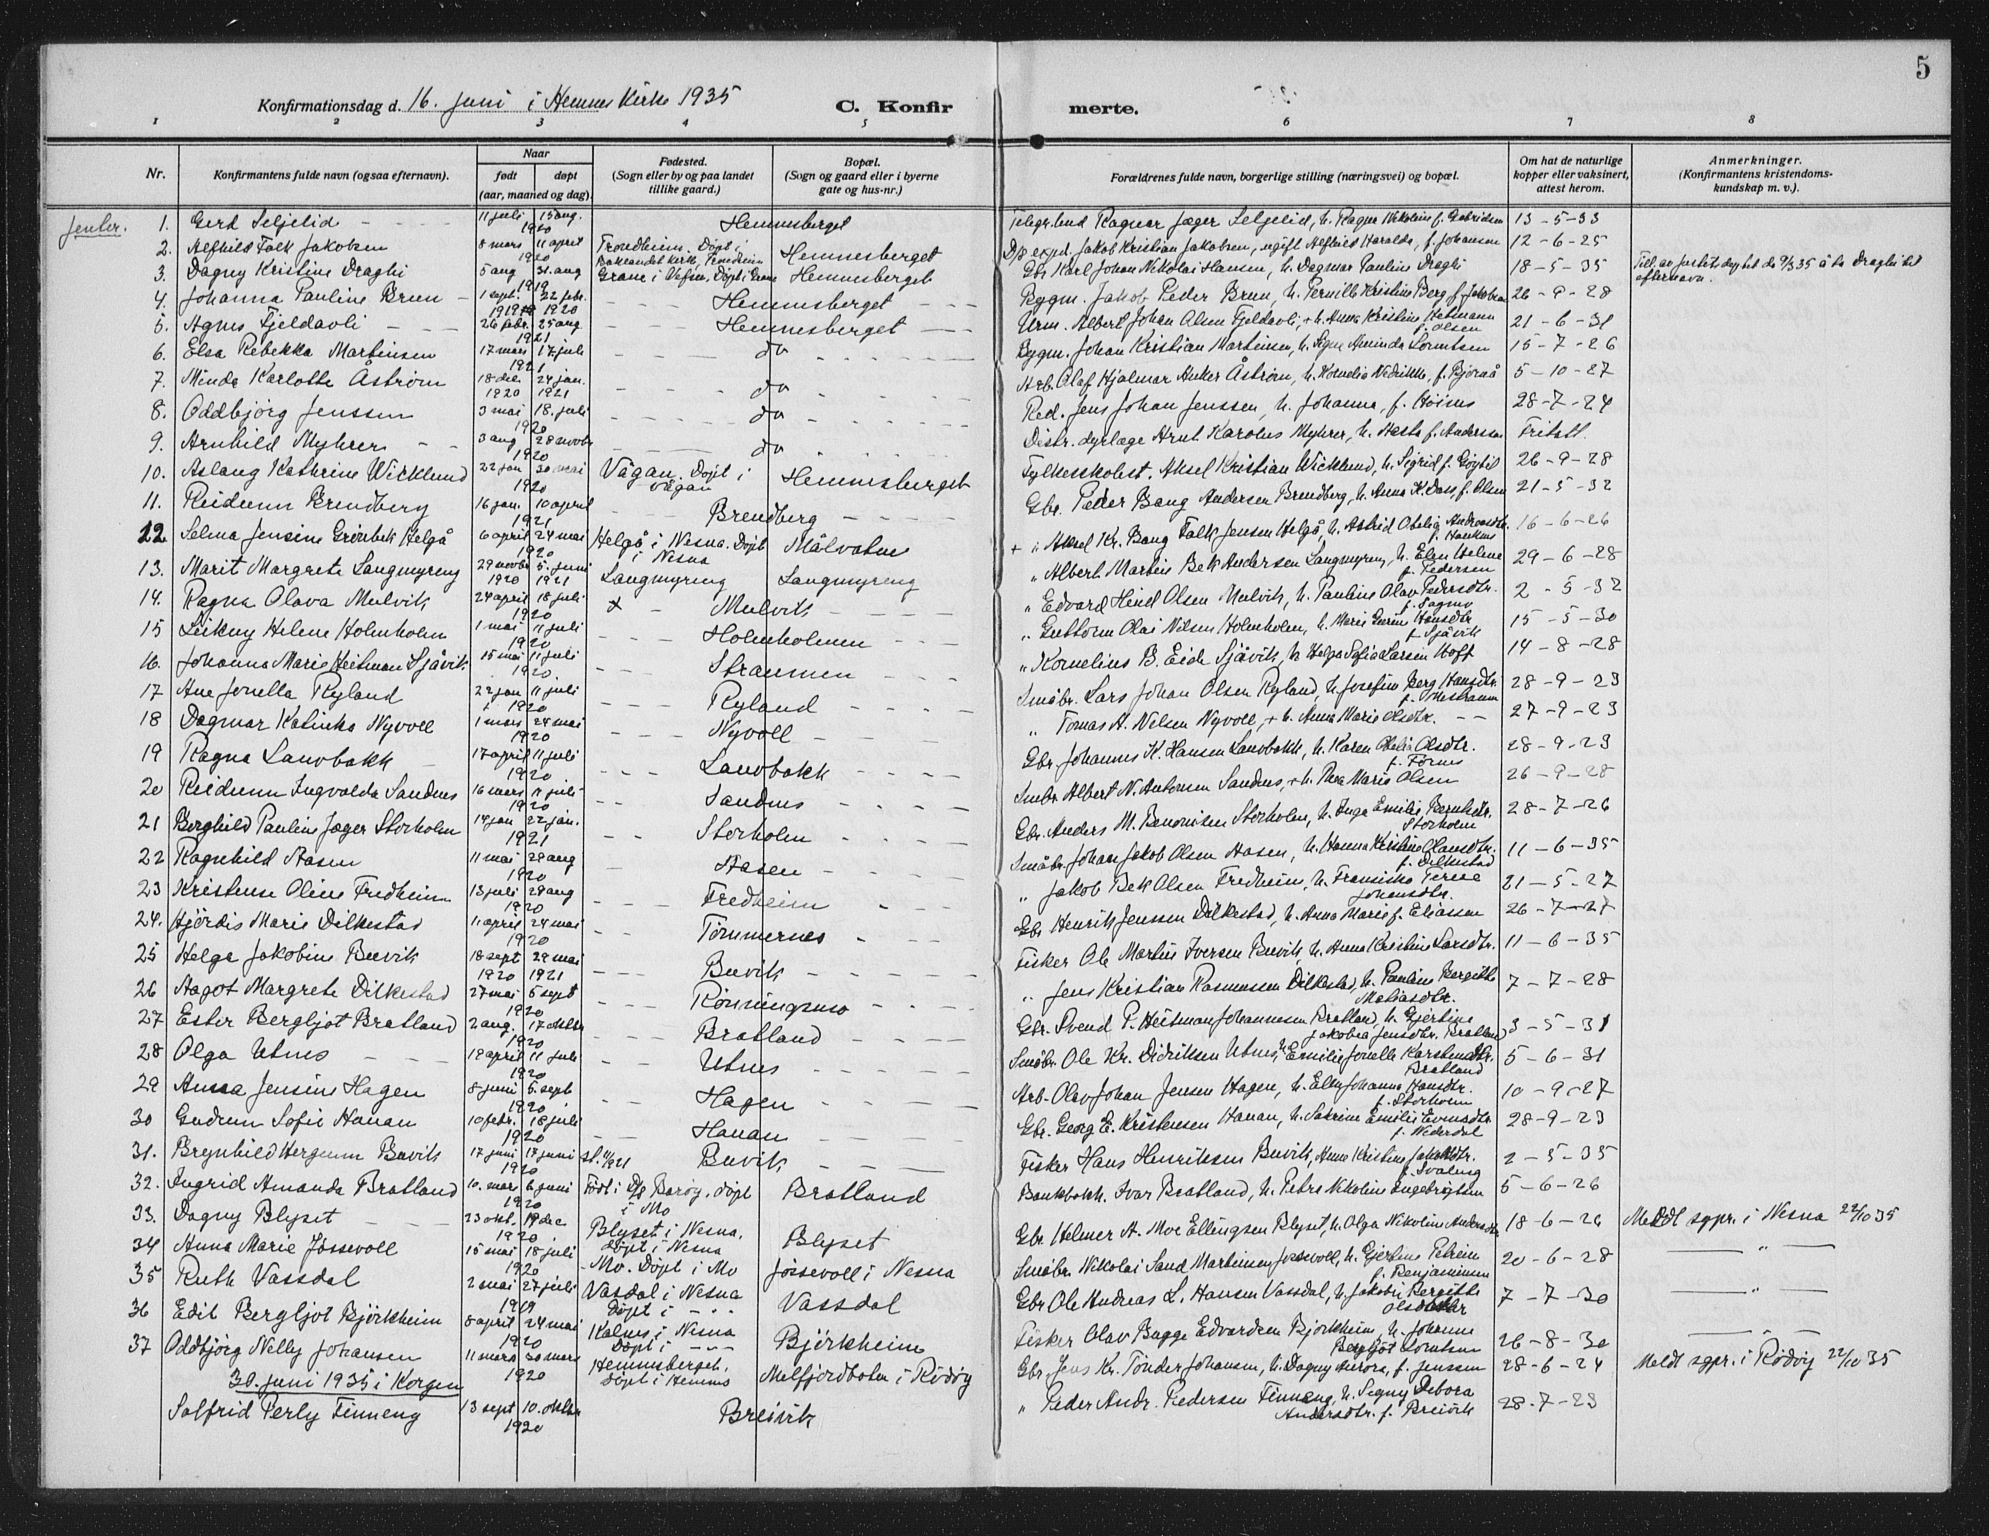 5
Konfirmationsdag d. 16. juni i Hemnes Kirke 1935
C. Konfirmerte.
1 2 3 4 5 6 7 8
Nr.
Konfirmantens fulde navn (ogsaa efternavn).
Naar
født døpt
(aar, maaned og dag)
Fødested.
(Sogn eller by og paa landet tillike gaard.)
Bopæl.
(Sogn og gaard eller i byerne gate og hus-nr.)
Forældrenes fulde navn, borgerlige stilling (næringsvei) og bopæl.
Om hat de naturlige kopper eller vaksinert, attest herom.
Anmerkninger.
(Konfirmantens kristendoms-kundskap m. v.).
Jenter.
1. Gerd Seljelid 11 juli 15 aug. 1920 Hemnesberget Ragnar Jæger Seljelid, 13-5-33
2. Alfhild Falk Jakobsen 8 mars 11 april 1920 Trondheim. Døpt i Baklandet Kirke, Trondheim Hemnesberget Jakob Kristian Jakobsen, ugift Alfhild Haralda, f. Johansen 12-6-25
3. Dagny Kristine Draghi 5 aug 31. aug 1919 Grane i Vefsn, Døpt i Grane Hemnesberget Gbr. Karl Johan Nikolai Hansen, h. Dagmar Pauline Draghi 18-5-35
4. Johanna Pauline Brun 1 sept. 1919 22 febr. 1920 Hemnesberget Bygm. Jakob Peder Brun, h. Pernille Kristine Berg f. Jakobsen 26-9-28
5. Agnes Fjeldavli 26 febr. 25 aug 1921 Hemnesberget Urm. Albert Johan Olsen Fjeldavli, + h. Anna Kristine Heitmann f. Olsen 21-6-31
6. Elsa Rebekka Martinsen 17 mars 17 juli 1921 do Bygm. Johan Kristian Martinsen, h. Signe Aminda Lorentsen 15-7-26
7. Minda Karlotte Åstrøm 18 des 1920 24 jan. 1921 do Arb. Olaf Hjalmar Anker Åstrøm, h. Kornelia Fredrikke, f. Bjørnå 5-10-27
8. Oddbjörg Jenssen 3 mai 18. juli 1920 do Red. Jens Johan Jenssen, h. Johanna, f. Høines 28-7-24
9. Arnhild Myhrer 3 aug 28 novbr 1920 do Distr. dyrlæge Arnt Karolus Myhrer, h. Hasta f. Anderssen Fritatt.
10. Aslaug Kathrine Wicklund 22 jan 30 mai 1920 Vågan. Døpt i Vågan Hemnesberget Fylkesskolest. Aksel Kristian Wicklund, h. Sigrid f. 26-9-28
11. Reidunn Brendberg 16 jan. 10 april 1921 Brendberg Gbr. Peder Bang Andersen Brendberg, h. Anna K. Dass, f. Olsen 21-5-32
12. Selma Jensine Grönbek Helgå 6 april 24 mai 1920 Helgå i Nesna. Døpt i Nesna Målvatnet + " Aksel Kr. Bang Falk Jensen Helgå, h. Astrid Otelia Andreasdtr. 16-6-26
13. Marit Margrete Langmyreng 29 novbr 1920 5. juni 1921 Langmyreng Langmyreng " Albert Martin Bek Andersen Langmyreng, h. Elen Helene f. Pedersen 29-6-28
14. Ragna Olava Mulvik 24 april 18 juli 1920 Mulvik " Edvard Heiel Olsen Mulvik, h. Pauline Olava Pedersdtr. 2-5-32
15 Leikny Helene Holmholm 1 mai 11 juli 1920 Holmholmen " Guttorm Olai Nilsen Holmholm, h. Marie Hansdtr f. Sjåvik 15-5-30
16. Johanna Marie Heitman Sjåvik 15 mai 11 juli 1920. Straumen " Kornelius B. Eide Sjåvik, h. Helga Sofia Larsen Hoff 14-8-28
17 Ane Jonella Ryland 22 jan 11 juli 1920 Ryland Småbr. Lars Johan Olsen Ryland, h. Josefine Berg Hansdtr. 28-9-23
18 Dagmar Katinka Nyvoll 1 mars 24 mai 1920 Nyvoll " Tomas A. Nilsen Nyvoll, + h. Anna Marie Olsdtr. 27-9-23
19 Ragna Lauvbakk 17 april 11 juli 1920 Lauvbakk Gbr. Johannes K. Hansen Lauvbakk, h. Karen Otelia Olsdtr. f. Fornes 28-9-23
20 Reidunn Ingvalda Sandnes 16 mars 11 juli 1920 Sandnes Småbr. Albert N. Antonsen Sandnes, + h. Thea Marie Olsen 26-9-28
21 Berghild Pauline Jæger Storholm 14 jan 22 jan. 1921 Storholm Gbr. Anders M. Benonisen Storholm, h. Inga Emilie Storholm 28-7-26
22 Ragnhild Aasen 11 mai 29 aug 1920 Aasen Småbr. Johan Jakob Olsen Aasen, h. Hanna Kristine Olausdtr. f. Dilkestad 11-6-35
23 Kristense Oline Fredheim 13 juli 29 aug 1920 Fredheim " Jakob Bek Olsen Fredheim, h. Fransiska Johansdtr. 21-5-27
24. Hjördis Marie Dilkestad 11 april 24 mai 1920 Tömmernes Gbr. Henrik Jenssen Dilkestad, h. Anna Marie f. Eliassen 26-7-27
25 Helga Jakobine Buvik 18 sept 1920 29 mai 1921 Buvik Fisker Ole Martin Iversen Buvik, h. Anna Kristine Larsdtr. 11-6-35
26 Aagot Margrete Dilkestad 27 mai 5 sept 1920 Rönningsmo " Jens Kristian Rasmussen Dilkestad, h. Pauline Bergitte Matiasdtr. 7-7-28
27 Ester Bergljot Bratland 2 aug. 17 oktbr 1920 Bratland Gbr. Svend P. Heitman Johannesen Bratland, h. Gjertine Jakobea Jensdtr. Bratland 3-5-31
28 Olga Utnes 18 april 11 juli 1920 Utnes Småbr. Ole Kr. Didriksen Utnes, h. Emilie Jonelle Karstensdtr. Bratland 5-6-31
29 Anna Jensine Hagen 8 juni 5. sept 1920 Hagen Arb. Olav Johan Jensen Hagen, h. Elly Johanna Hansdtr. f. Storholm 10-9-27
30 Gudrun Sofie Hanan 10 febr. 18 juli 1920 Hanan Gbr. Georg E. Kristensen Hanan, h. Katrine Emilie Evensdtr. f. Nederdal 28-9-23
31. Brynhild Hergunn Buvik 17 juni 17 juni 1920 Buvik Fisker Hans Henriksen Buvik, Anna Kristine Jakobdtr. f. Svaleng 2-5-35
32. Ingrid Amanda Bratland 10. mars 6 juni 1920 Født i D/S Barøy, døpt i Mo Bratland Bankbokh. Ivar Bratland, h. Petra Nikoline Ingebrigtsen 5-6-26
33. Dagny Blyset 23 okt. 19 dec 1920 Blyset i Nesna. Døpt i Nesna Blyset Gbr. Helmer A. Moe Ellingsen Blyset, h. Olga Nikoline Andersdtr 18-6-26 Meldt sgpr. i Nesna 22/10 35
34 Anna Marie Jössevoll 15 mai 18 juli 1920 Mo. Døpt i Mo Jössevoll i Nesna Småbr. Nikolai Sand Martinsen Jössevoll, h. Gjertine Petrine f. Benjaminsen 20-6-28 "
35 Ruth Vassdal 2 mai 27 juli 1919 Vasdal i Nesna Døpt i " Vassdal Gbr. Ole Andreas L. Hansen Vassdal, h. Jakobie Bergitte 7-7-30 "
36 Edit Bergljot Björkheim 8 april 24 mai 1920 i Nesna Døpt i " Björkheim Fisker Olav Bugge Edvardsen Björkheim, h. Johanne Bergljot Lorntsen 26-8-30 "
37 Oddbjörg Nelly Johansen 11 mars 30 mars 1920 Hemnesberget, døpt i Hemnes Melfjordbotn i Rödöy Gbr. Jens Kr. Tönder Johansen, h. Dagny Aurora, f. Jenssen 28-6-24 Meldt sgpr. i Rödöy 22/10 35
30. juni 1935 i Korgen
Solfrid Perly Finneng 13 sept 10. oktbr 1920 Breivik " Peder Andr. Pedersen Finneng, h. Signy Debora Andersdtr. f. Breivik 28-7-23